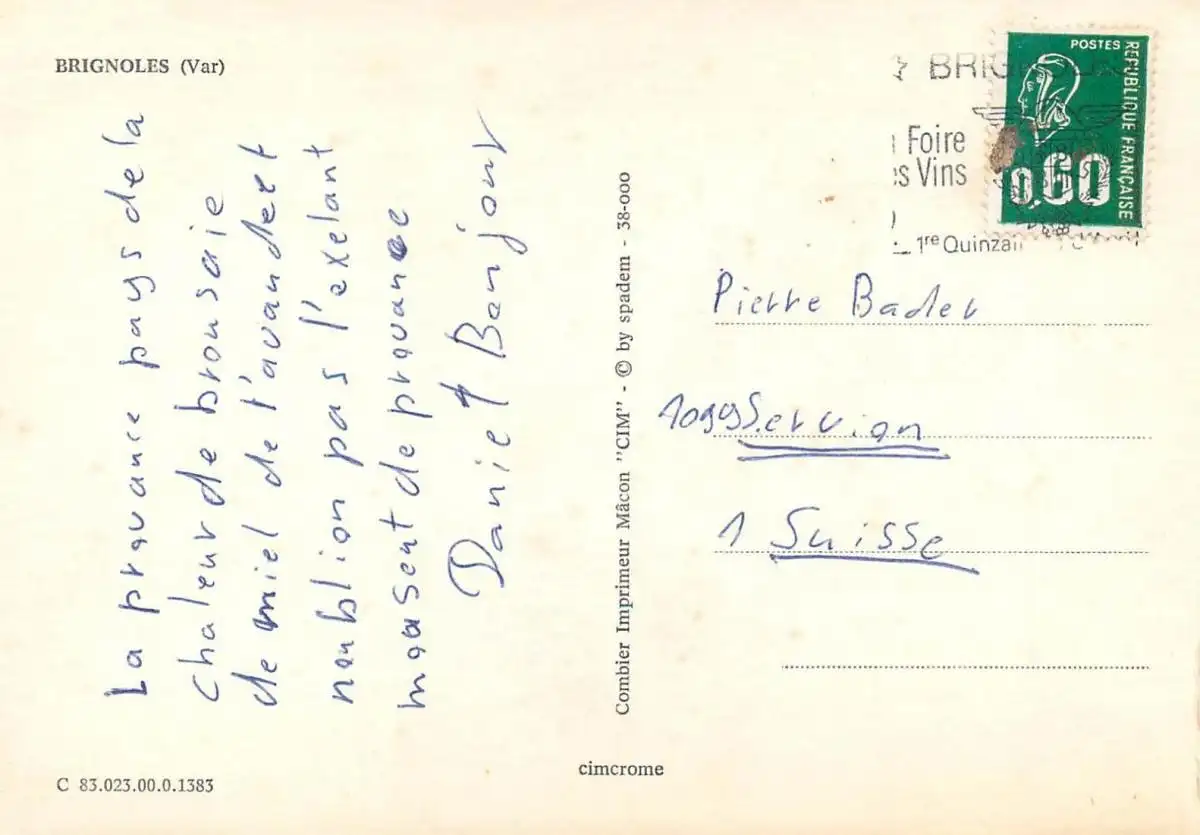 BRIGNOLES (Var)
La provance pays de la
chaleur de brousaie
de miel de l'avande et
noublion pas l'exelant
mousent de provance
Daniel Bonjour
C 83.023.00.0.1383
Combier Imprimeur Mâcon "CIM" - © by spadem - 38-000
cimcrome
BRIGNOLES
Foire
es Vins
1re Quinzai
POSTES
REPUBLIQUE FRANÇAISE
0,60
Pierre Bader
1099 Servion
1 Suisse